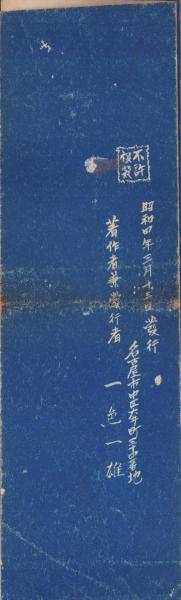 不許
複製
昭和四年三月十三日發行
名古屋市中区 町 番地
著作者兼發行者 一色一雄